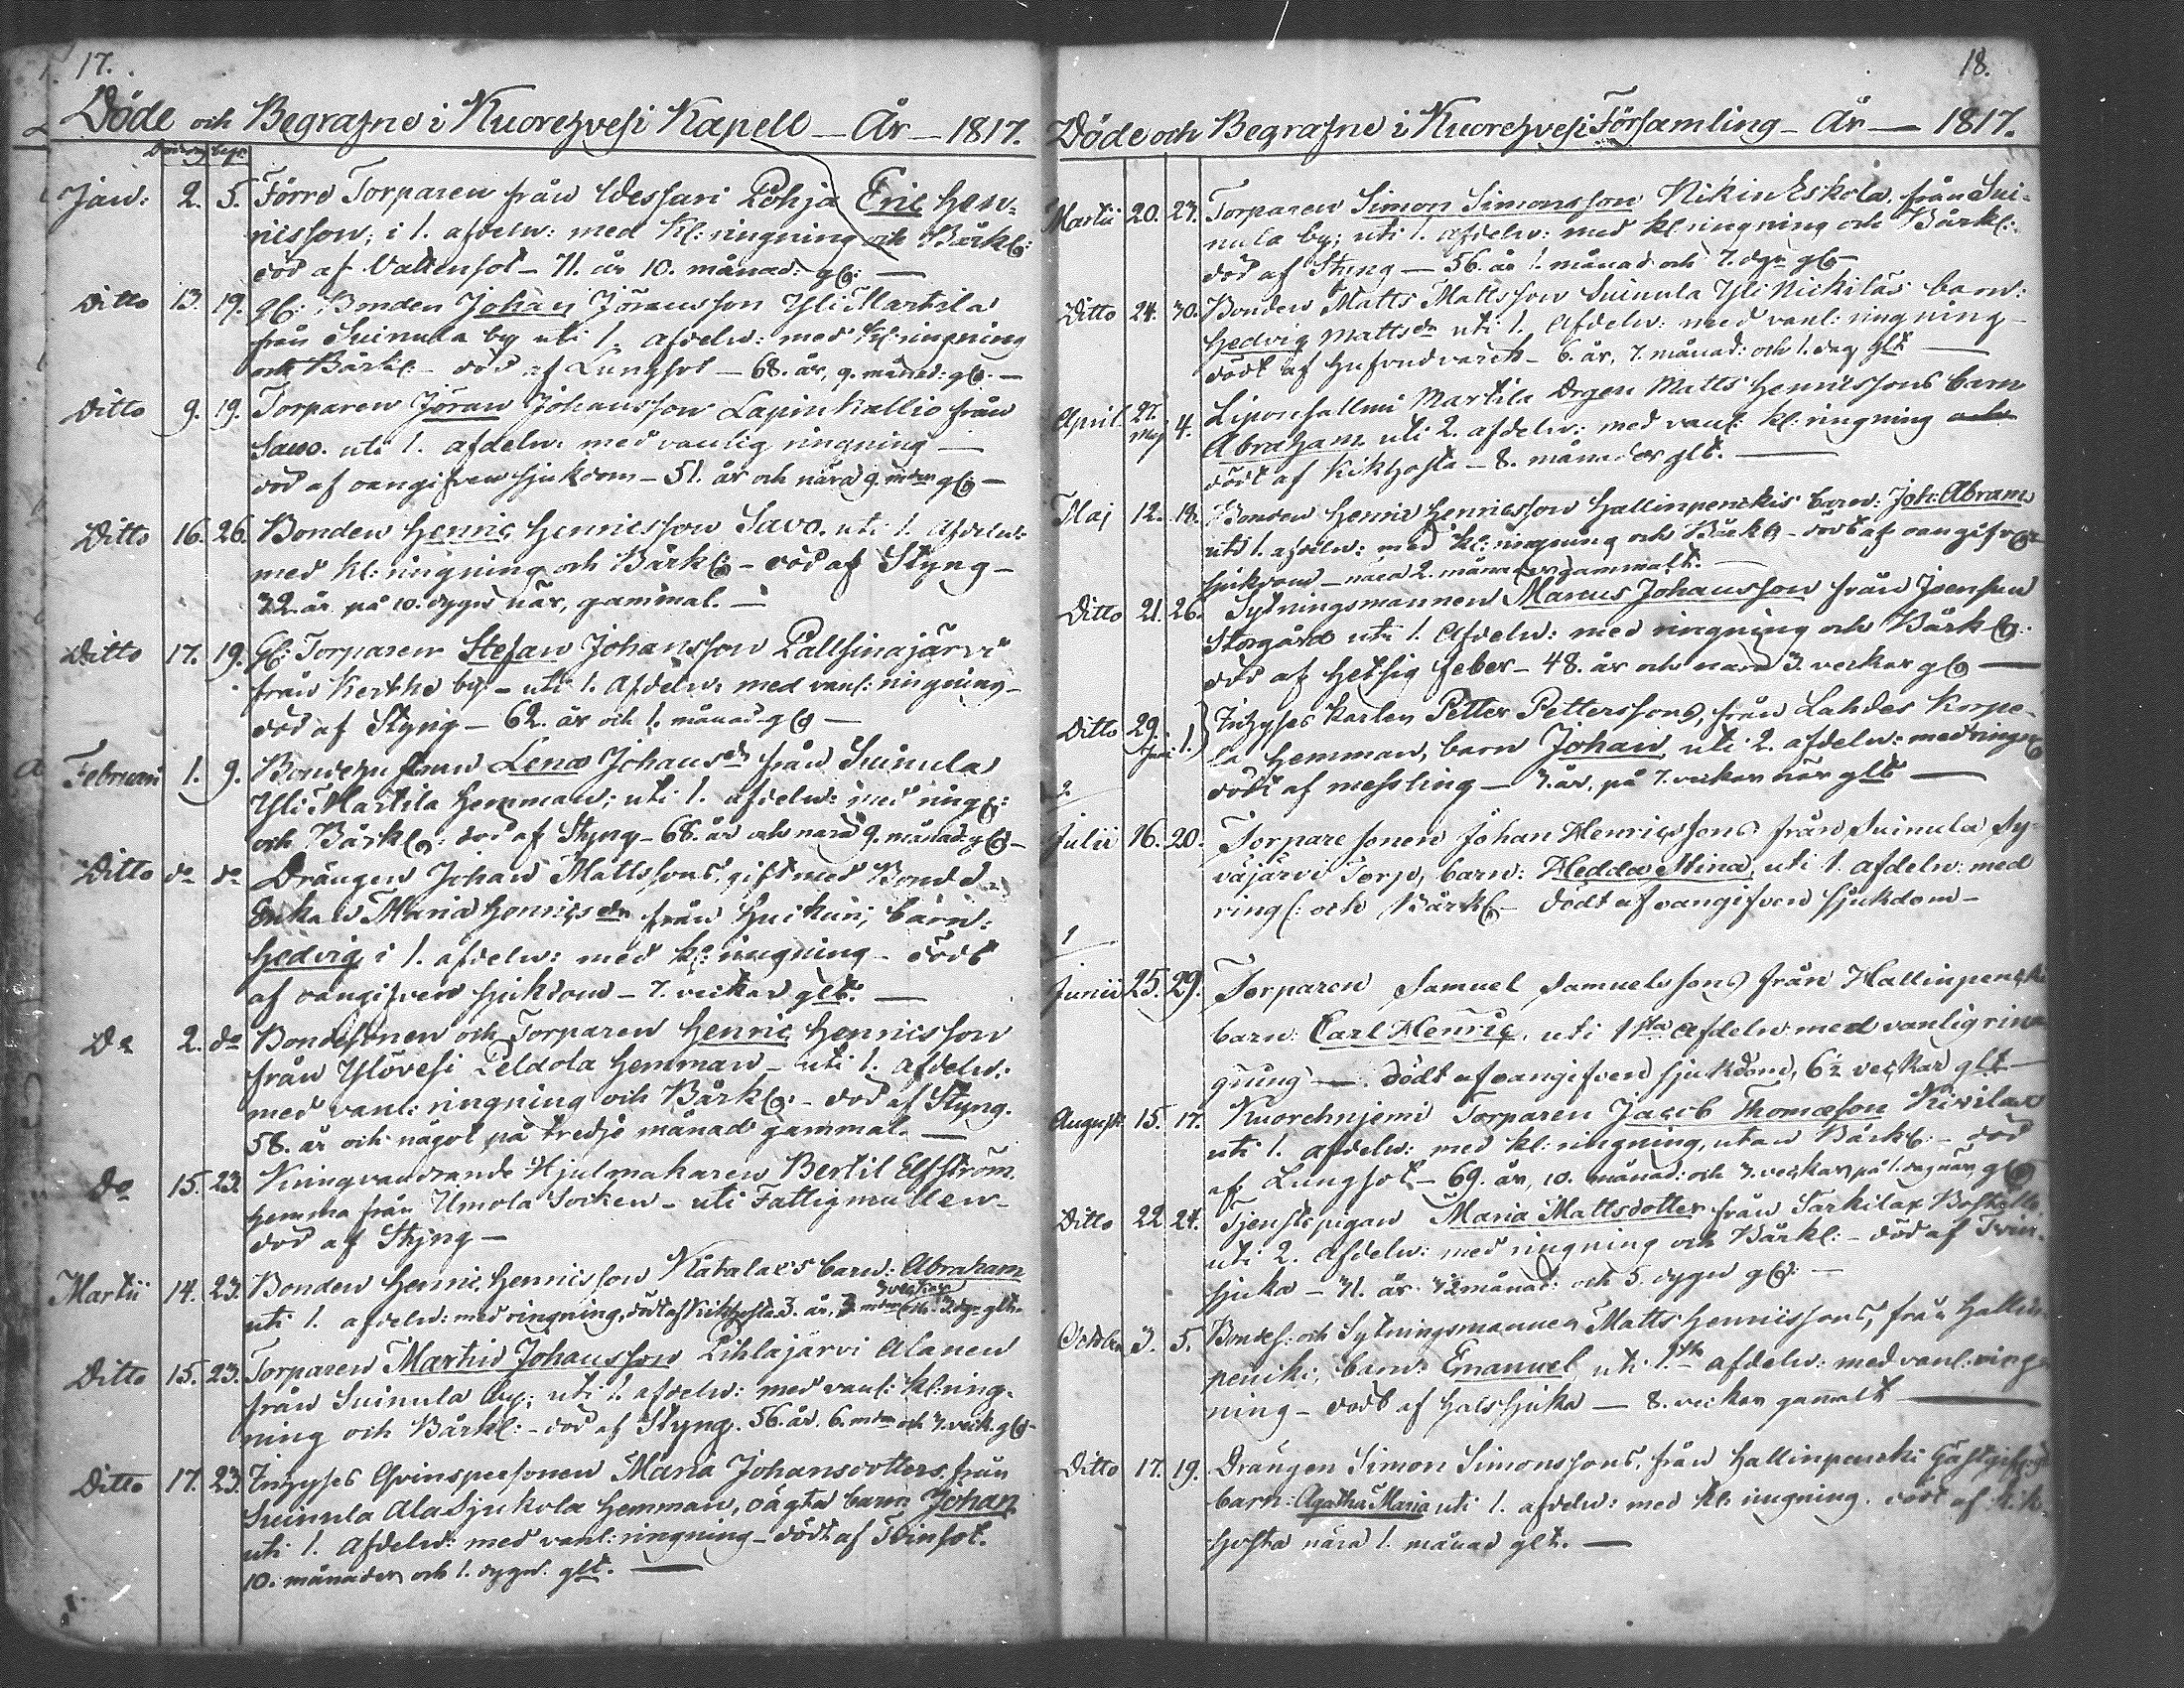 17.
Döde och Begrafne i Kuorehvesi Kapell – År – 1817.
Död begr
Jan: 2. 5. Förre Torparen från Wessari Pohja Eric Hen-
ricsson; i 1. afdeln: med kl: ringning och Bårkl:
död af Vattensot – 71. år 10. månad: gl: –
Ditto 13. 19. gl: Bonden Johan Jöransson Yli Martila
från Suinula by uti 1. afdeln: med kl: ringning
och Bårkl – död af Lungsot – 68. år, 9. månad: gl: –
Ditto 9. 19. Torparen Jöran Johansson Lapinkallio från
Sawo. uti 1. afdeln: med vanlig ringning –
död af oangifven sjukdom – 51. år och nära 9. mdr gl –
Ditto 16. 26. Bonden Henric Henricsson Savo. uti 1. afdeln:
med kl: ringning och Bårkl: – död af Styng –
32. år på 10. dygn när, gammal. –
Ditto 17. 19. Gl: Torparen Stefan Johansson Pallsinajärvi
från Kerthe by – uti 1. afdeln: med vanl: ringning –
död af Styng – 62. år och 1. månad gl –
Februarii 1. 9. Bondehustrun Lena Johansdr från Suinula
Yli Martila Hemman; uti 1. afdeln: med ring:
och Bårkl: död af Styng – 68. år och nära 9. månad: gl –
Ditto do do Drängen Johan Mattssons, gift med Bonde
Enkan Maria Henricsdr från Huikuri, barn:
Hedvig i 1. afdeln: med kl: ringning – dödt
af oangifven sjukdom – 7. veckor glt: –
Do 2. do Bondesonen och Torparen Henric Henricsson
från Ylövesi Peldola Hemman – uti 1. afdeln:
med vanl: ringning och Bårkl: – död af Styng.
58. år och något på tredje månad gammal. –
Do 15. 23. Kringvandrande Hjulmakaren Bertil Elfström
hemma från Umola Socken – uti Fattigmullen –
död af Styng –
Martii 14. 23. Bonden Henric Henricsson Katalaes barn: Abraham
3 veckor
uti 1. afdeln: med ringning, dödt af Kikhosta 3. år, och 3. dgr glt
Ditto 15. 23. Torparen Martin Johansson Pihlajärvi Alanen
från Suinula by; uti 1. afdeln: med vanl: kl: ring-
ning och Bårkl: – död af Styng. 56. år. 6. mdr och 3. veck. gl –
Ditto 17. 23. Inhyses Qvinspersonen Maria Johansdotters från
Suinula Ala Sjukola Hemman, oägta barn Johan
uti 1. afdeln: med vanl: ringning – dödt af Tvinsot.
10. månader och 1. dygn glt. –
18.
Döde och Begrafne i Kuorehvesi Församling – År – 1817.
Martii 20. 23. Torparen Simon Simonsson Nikin Eskola från Sui-
nula by; uti 1. afdeln: med kl ringning och Bårkl:
död af Styng – 56. år 1. månad och 7. dgr gl –
Ditto 24. 30. Bonden Matts Mattsson Suinula Yli Nickiläs barn:
Hedvig Mattsdr uti 1. afdeln: med vanl: ringning –
dödt af Hufvudvärk – 6. år, 7. månad: och 1. dag glt –
April 27. Maj 4. Liponsallmi Martila Drgen Matts Henricssons barn
Abraham uti 2. afdeln: med vanl: kl: ringning
dödt af Kikhosta – 8. månader glt. –
Maj 12. 18. Bonden Henric Henricsson Hallinpenckis barn: Joh: Abram
uti 1. afdeln: med kl: ringning och Bårkl – dödt af oangifven
sjukdom – nära 2. månader gammalt. –
Ditto 21. 26. Sytningsmannen Marcus Johansson från Joensuu
Storgård uti 1. afdeln: med ringning och Bårkl:
död af Hetsig feber – 48. år och nära 3. veckor gl –
Ditto 29. Juni 1. Inhyses karlen Petter Petterssons, från Lahdes Korpe-
la Hemman, barn Johan, uti 2. afdeln: med ring
dödt af messling – 3. år, på 7. veckor när glt –
2
Julii 16. 20. Torparesonen Johan Henricssons från Suinula Sy-
väjärvi Torp, barn: Hedda Stina, uti 1. afdeln: med
ring: och Bårkl: – dödt af oangifven sjukdom –
1
Junii 25. 29. Torparen Samuel Samuelssons från Hallinpencki
barn: Carl Henric, uti 1sta afdeln: med vanlig ring
gning – dödt af oangifven sjukdom, 6½ veckor glt –
Augusti 15. 17. Kuorehnjemi Torparen Jacob Thomasson Kivilax
uti 1. afdeln: med kl: ringning, utan Bårkl: – död
af Lungsot – 69. år, 10. månad: och 3. veckor, på 1. dag när, gl
Ditto 22. 24. Tjenstepigan Maria Mattsdotter från Särkilax Boställe
uti 2. afdeln: med ringning och Bårkl: – död af Tvin-
sjuka – 31. år månad: och 5. dygn gl: –
October 3. 5. Bondes: och Sytningsmannen Matts Henricssons, från Hallin-
pencki, barn: Emanuel, uti 1sta afdeln: med vanl: ring
ning – dödt af Halssjuka – 8. veckor gammalt –
Ditto 17. 19. Drängen Simon Simonssons, från Hallinpencki Gästgifveri
barn: Agatha Maria uti 1. afdeln: med kl: ringning. dödt af kik-
hosta nära 1. månad glt. –